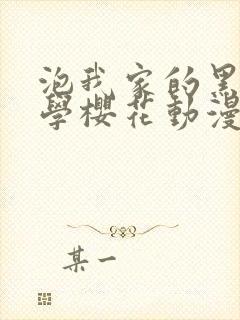 泡我家的黑
學櫻花動漫
某一